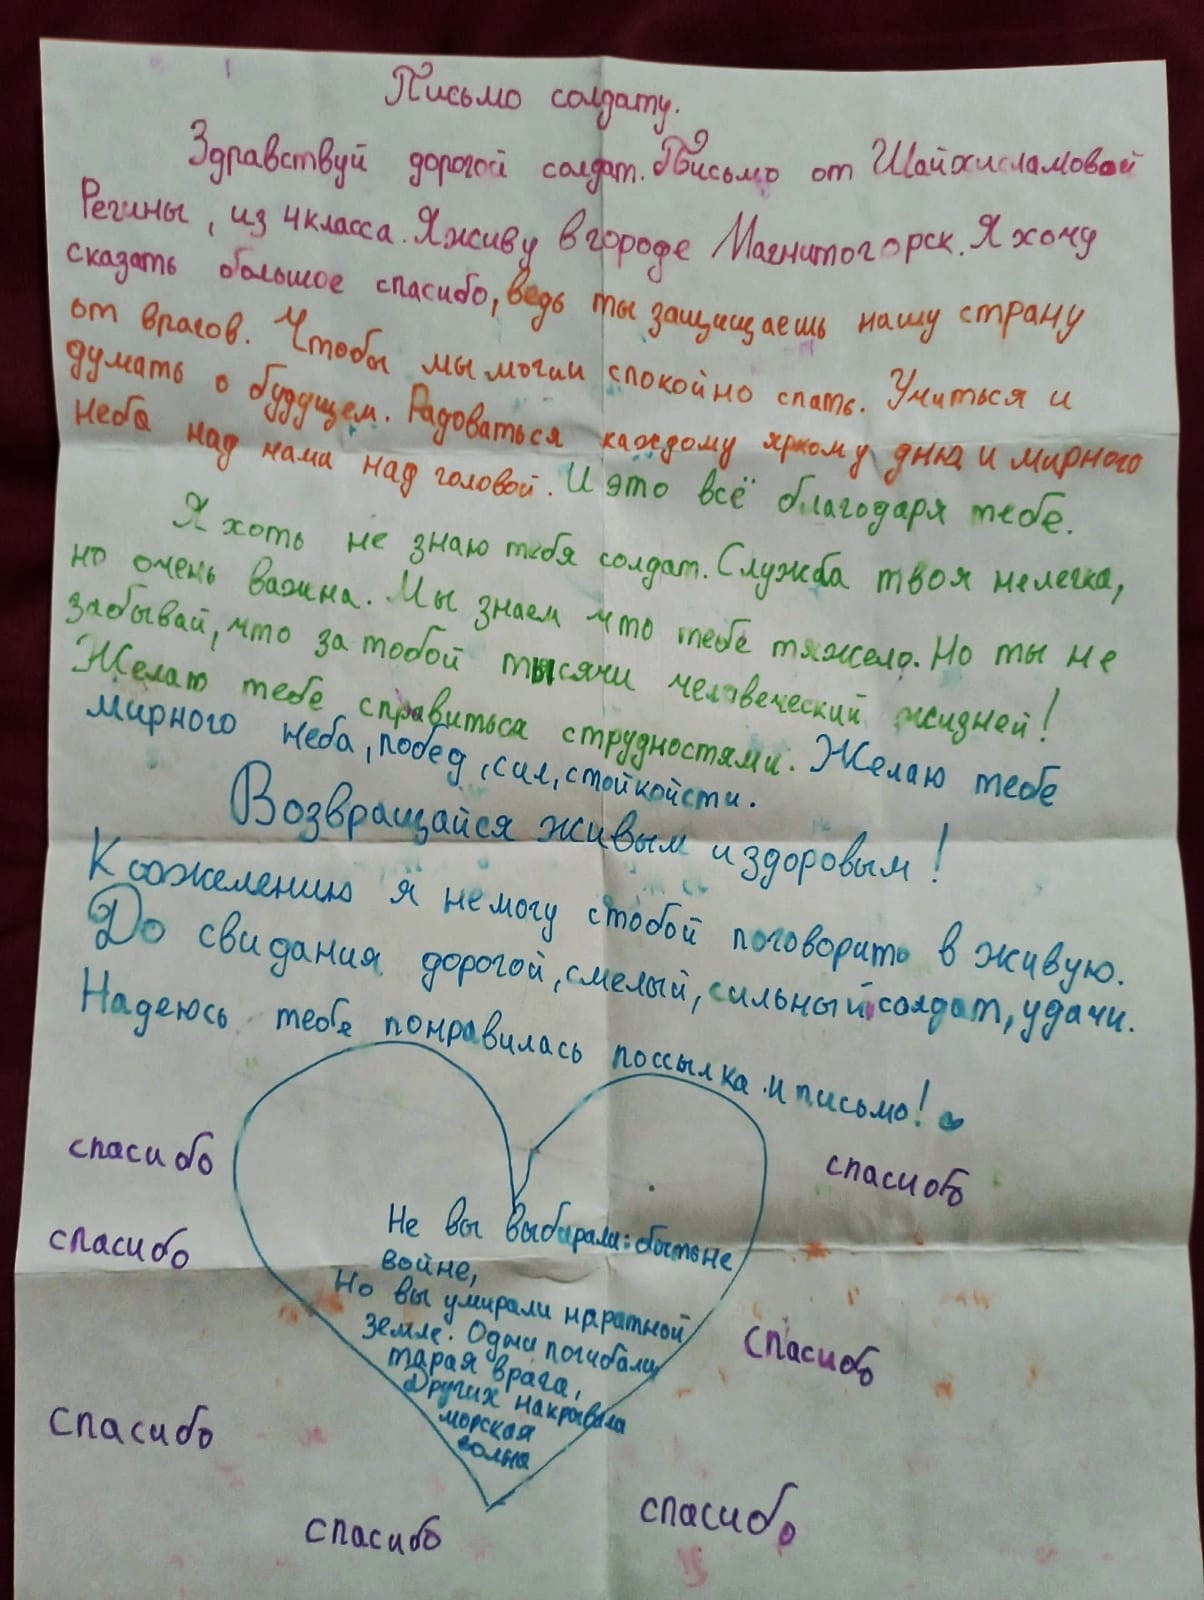 Письмо солдату.
Здравствуй дорогой солдат. Письмо от Шайхисламовой
Регины, из 4 класса. Я живу в городе Магнитогорск. Я хочу
сказать большое спасибо, ведь ты защищаешь нашу страну
от врагов. Чтобы мы могли спокойно спать. Учиться и
думать о будущем. Радоваться каждому яркому дню и мирного
неба над нами над головой. И это всё благодаря тебе.
Я хоть не знаю тебя солдат. Служба твоя нелегка,
но очень важна. Мы знаем что тебе тяжело. Но ты не
забывай, что за тобой тысячи человеческий жизней!
Желаю тебе справиться струдностями. Желаю тебе
мирного неба, побед, сил, стойкойсти.
Возвращайся живым и здоровым!
К сожелению я не могу стобой поговорить в живую.
До свидания дорогой, смелый, сильный солдат, удачи.
Надеюсь тебе понравилась поссылка и письмо!
спасибо
спасибо
спасибо
спасибо
Не вы выбирали: быть не
войне,
Но вы умирали на ратной
земле. Одни погибали
тарая врага,
Других накрывала
морская
волна
спасибо
спасибо
спасибо